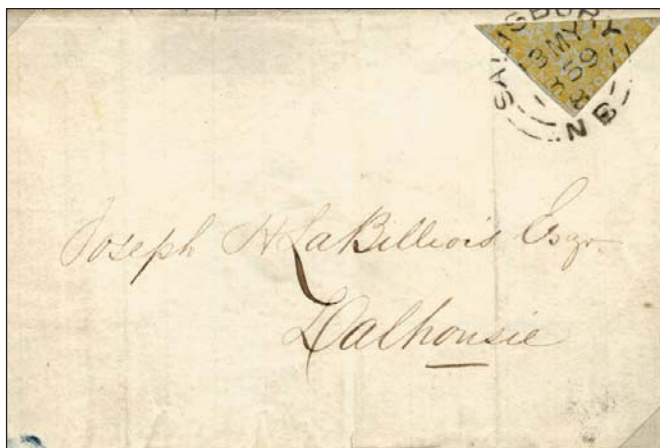 SALISBURY
MY
59
N B
Joseph H LaBillois Esqr
Dalhousie